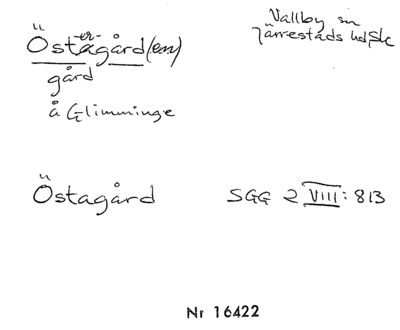 Östergård(en)
Vallby sn
Järrestads hd, Sk
gård
å Glimminge
Östagård SGG 2 VIII: 813
Nr 16422